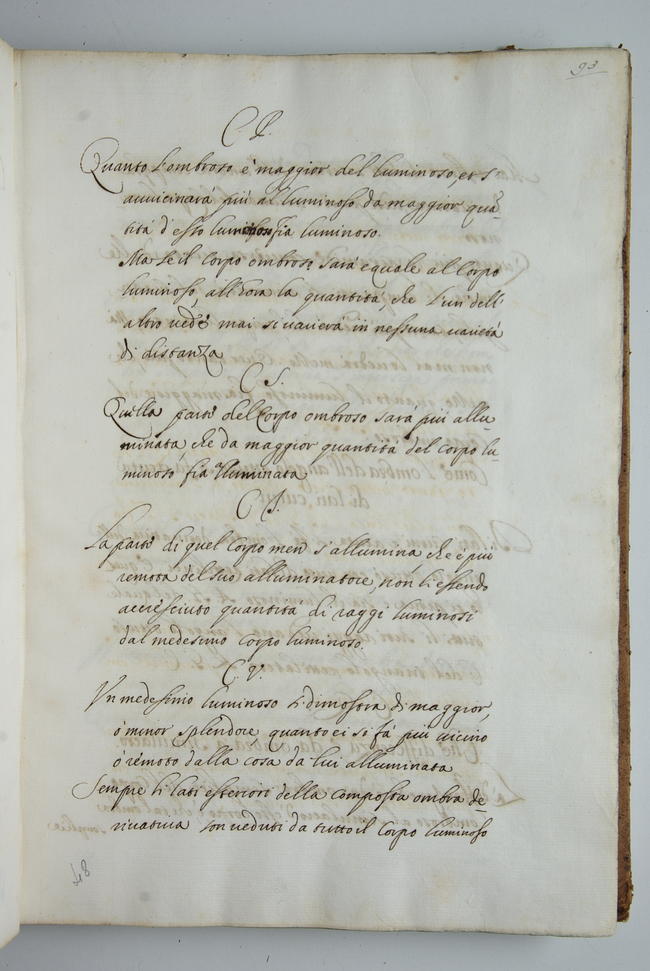 93
C. R.
Quanto l'ombroso è maggior del luminoso, et s'
avvicinarà piú al luminoso da maggior quã
tità d'esso luminoso fia luminoso.
Ma se il corpo ombroso sarà equale al Corpo
luminoso, all'hora la quantità, che l'un dell'
altro vede mai si varierà in nessuna varietà
di distanza
C. S.
Quella parte del Corpo ombroso sarà piú allu-
minata, che da maggior quantità del corpo lu-
minoso fia illuminata
C. T.
La parte di quel Corpo men s'allumina che è piú
remota del suo alluminatore, non li essendo
accresciuto quantità di raggi luminosi
dal medesimo corpo luminoso.
C. V.
Un medesimo luminoso si dimostra di maggior,
ò minor splendore quanto ei si fà piú vicino
ò remoto dalla cosa da lui alluminata
Sempre li lati esteriori della composta ombra de-
rivativa son veduti da tutto il Corpo luminoso
48